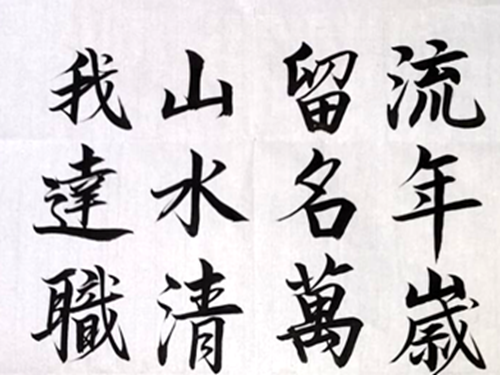 流年歳
留名萬
山水清
我達職